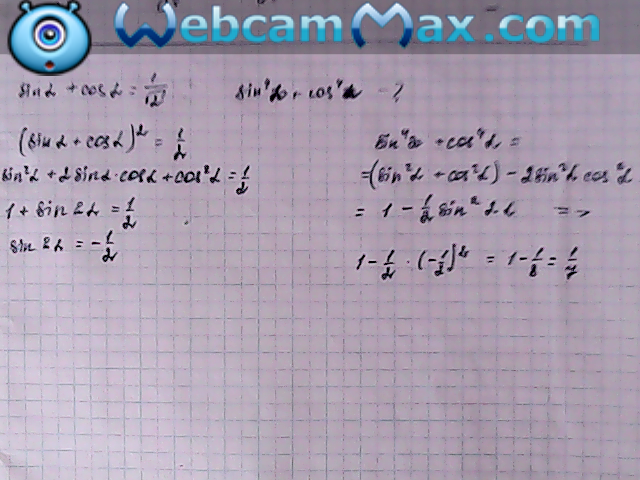 WebcamMax.com
sin α + cos α = 1/√2    sin⁴α + cos⁴α - ?
(sin α + cos α)² = 1/2
sin²α + 2 sin α · cos α + cos²α = 1/2
1 + sin 2α = 1/2
sin 2α = -1/2
sin⁴α + cos⁴α =
= (sin²α + cos²α) - 2 sin²α cos²α
= 1 - 1/2 sin² 2α =>
1 - 1/2 · (-1/2)² = 1 - 1/8 = 1/7